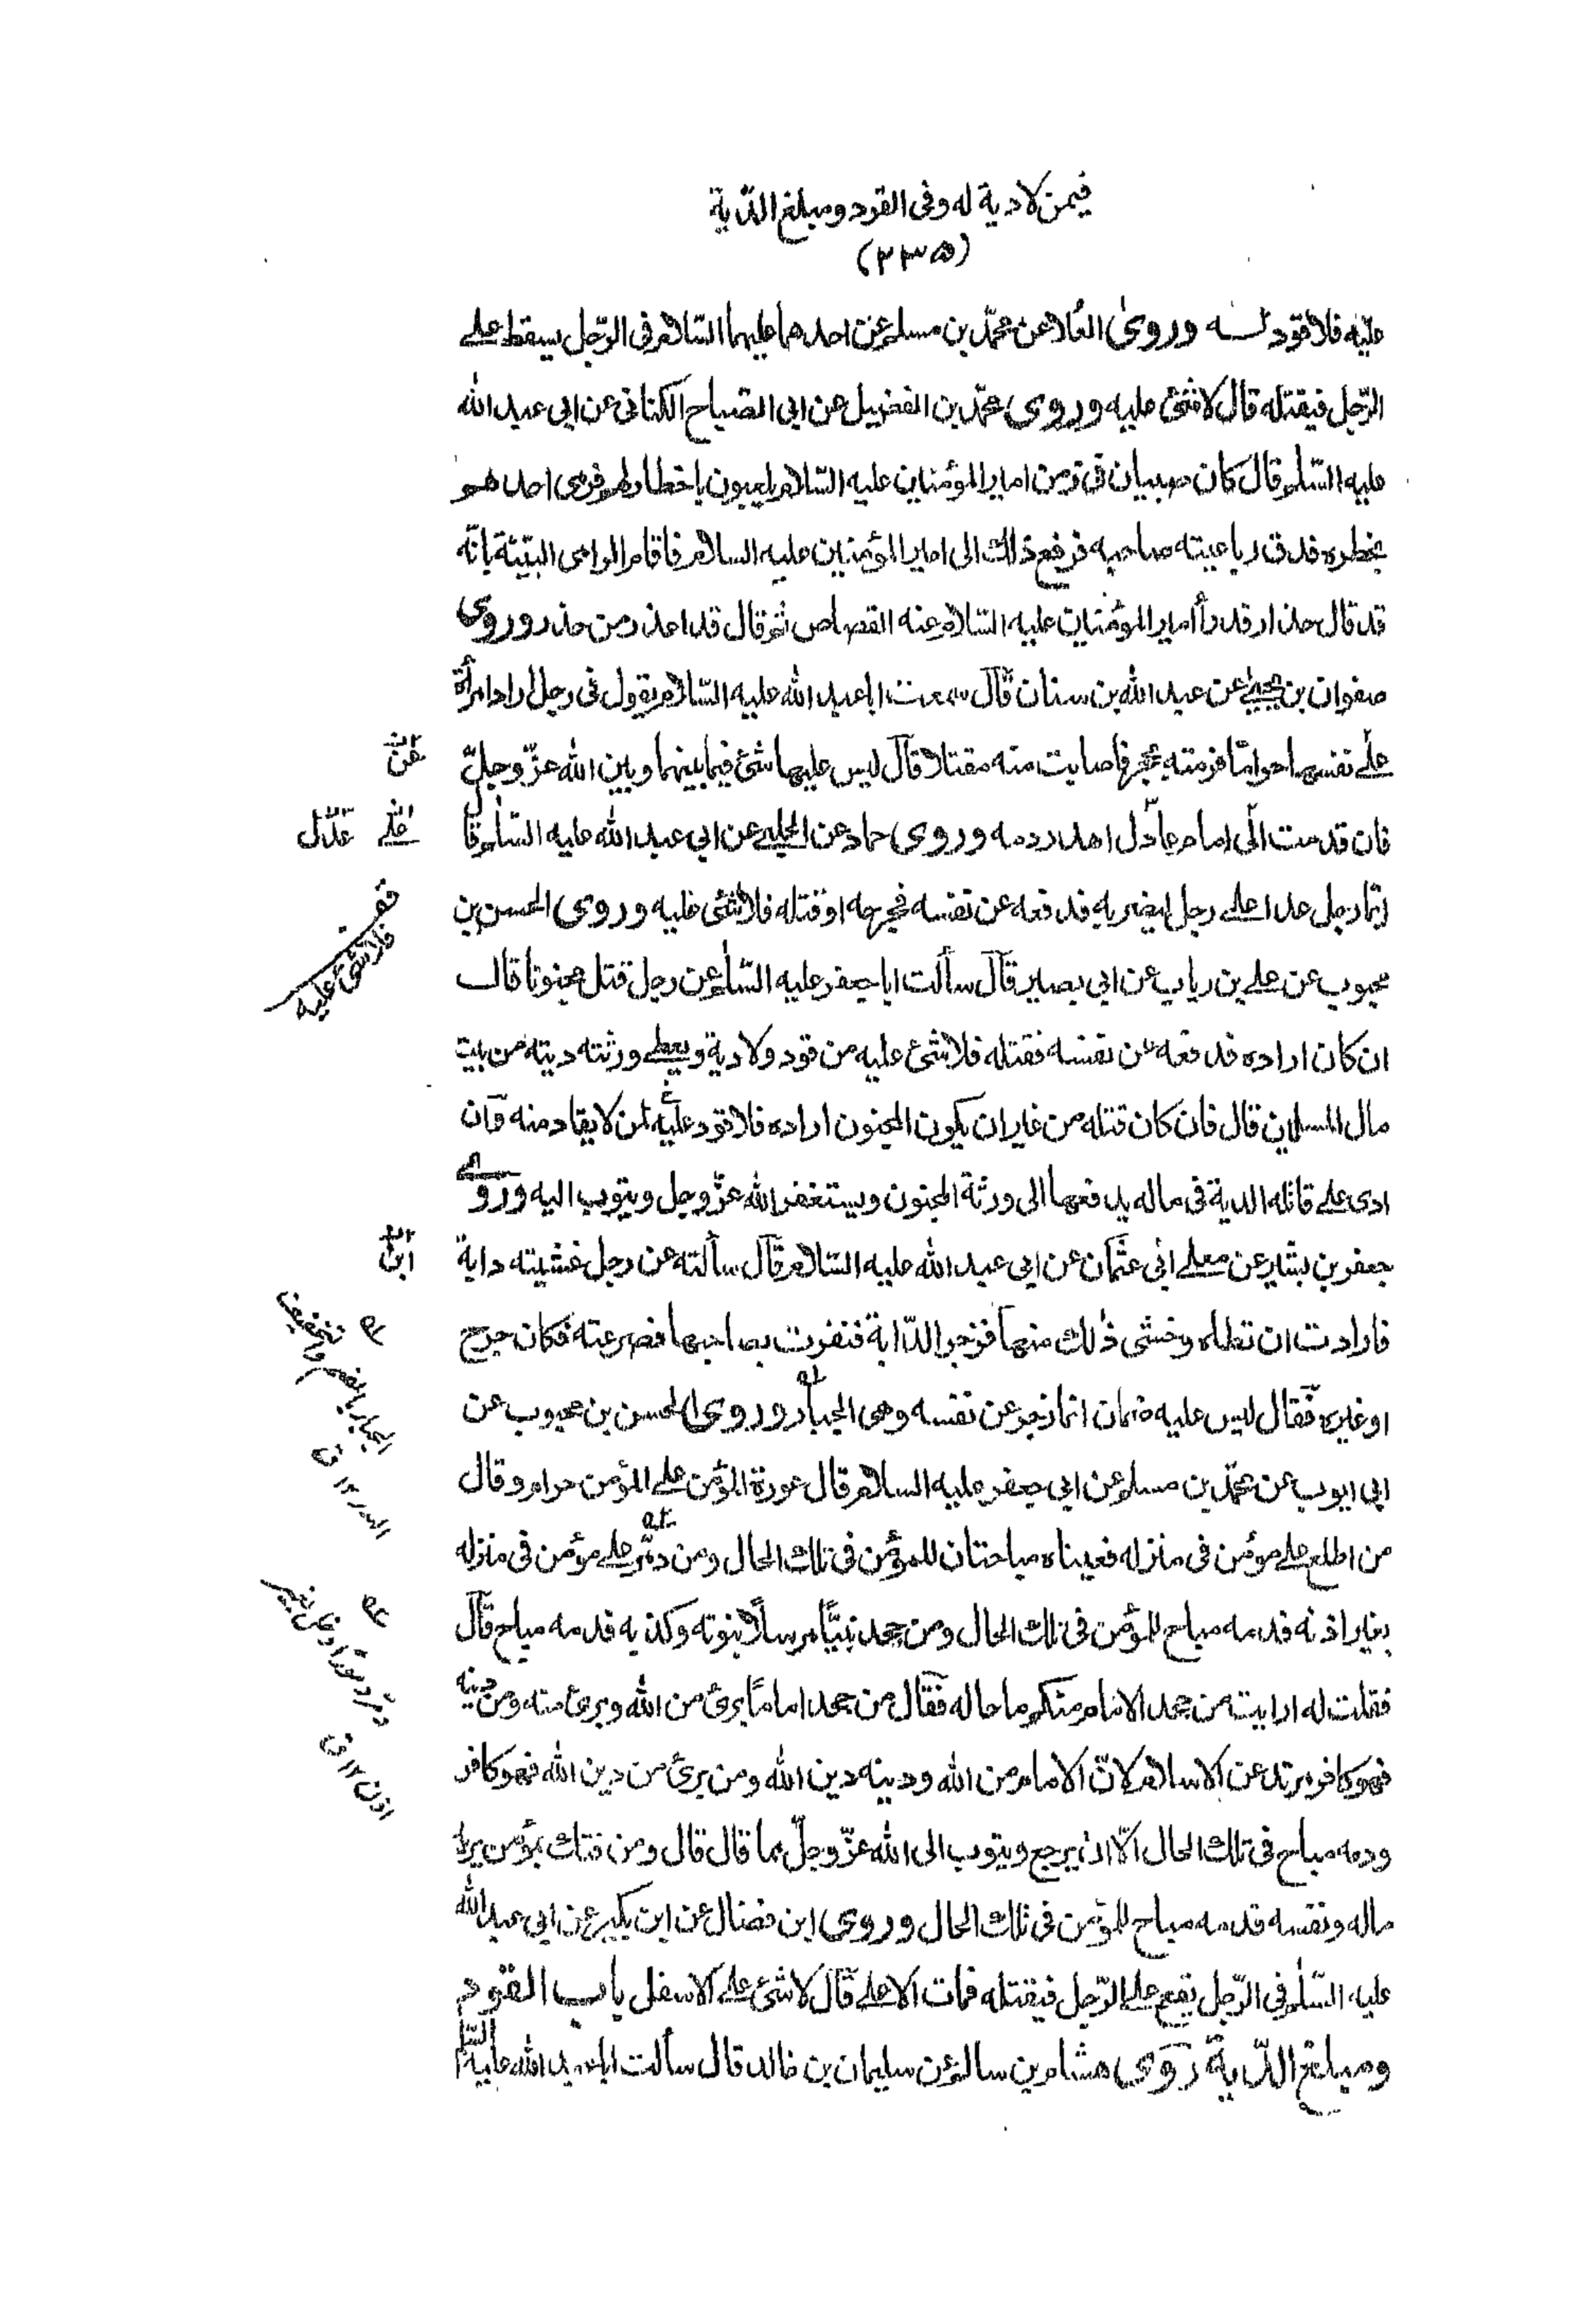 فيمن لا دية له وفى القود ومبلغ الدّية
(٢٣٥)
عليه فلا قود له وروى العلا عن محمّد بن مسلم عن احدهما عليهما السّلام فى الرّجل يسقط على
الرّجل فيقتله قال لا شئ عليه وروى محمّد بن الفضيل عن ابى الصّباح الكنانى عن ابى عبد الله
عليه السّلم قال كان صبيان فى زمن امير المؤمنين عليه السّلام يلعبون باخطار لهم فرمى احدهم
بخطره فدق رباعيته صاحبه فرفع ذلك الى امير المؤمنين عليه السلام فاقام الرامى البيّنة بانّه
قد قال حذار فدرأ امير المؤمنين عليه السّلام عنه القصاص ثم قال قد اعذر من حذر وروى
صفوان بن يحيى عن عبد الله بن سنان قال سمعت ابا عبد الله عليه السّلام يقول فى رجل اراد امرأة
على نفسها حراما فرمته بحجر فاصابت منه مقتلا قال ليس عليها شئ فيما بينها وبين الله عزّ وجلّ
فان قدمت الى امام عادل اهدر دمه وروى حماد عن الحلبى عن ابى عبد الله عليه السّلم قال
ايّما رجل عدا على رجل ليضربه فدفعه عن نفسه فجرحه او قتله فلا شئ عليه وروى الحسن بن
محبوب عن على بن رياب عن ابى بصير قال سألت ابا جعفر عليه السّلم عن رجل قتل مجنونا قال
ان كان اراده فدفعه عن نفسه فقتله فلا شئ عليه من قود ولا دية ويعطى ورثته ديته من بيت
مال المسلمين قال فان كان قتله من غير ان يكون المجنون اراده فلا قود عليه لمن لا يقاد منه وان
ادى على قاتله الدية فى ماله يدفعها الى ورثة المجنون ويستغفر الله عزّ وجل ويتوب اليه وروى
جعفر بن بشير عن معلى ابى عثمان عن ابى عبد الله عليه السّلام قال سألته عن رجل غشيته دابة
فارادت ان تطاه وخشى ذلك منها فزجر الدّابة فنفرت بصاحبها فصرعته فكان جرح
او غيره فقال ليس عليه ضمان انما زجر عن نفسه وهى الجبار وروى الحسن بن محبوب عن
ابى ايوب عن محمّد بن مسلم عن ابى جعفر عليه السلام قال عورة المؤمن على المؤمن حرام وقال
من اطلع على مؤمن فى منزله فعيناه مباحتان للمؤمن فى تلك الحال ومن دمّر على مؤمن فى منزله
بغير اذنه فدمه مباح للمؤمن فى تلك الحال ومن جحد نبيّا مرسلًا نبوته وكذبه فدمه مباح قال
فقلت له ارايت من جحد الامام منكم ما حاله فقال من جحد اماما برئ من الله وبرئ منه ومن دينه
فهو كافر مرتد عن الاسلام لانّ الامام من الله ودينه دين الله ومن برئ من دين الله فهو كافر
ودمه مباح فى تلك الحال الّا ان يرجع ويتوب الى الله عزّ وجلّ مما قال قال ومن فتك بمؤمن يريد
ماله ونفسه فدمه مباح للمؤمن فى تلك الحال وروى ابن فضال عن ابن بكير عن ابى عبد الله
عليه السّلم فى الرّجل يقع على الرّجل فيقتله فمات الاعلى قال لا شئ على الاسفل باب القود
ومبلغ الدّية روى هشام بن سالم عن سليمان بن خالد قال سألت ابا عبد الله عليه السّلام
عن
على عدل
فلا شئ عليه
ابن
الجبار بالضم والتخفيف
الهدر ١٢ ق
اذن ١٢ ق